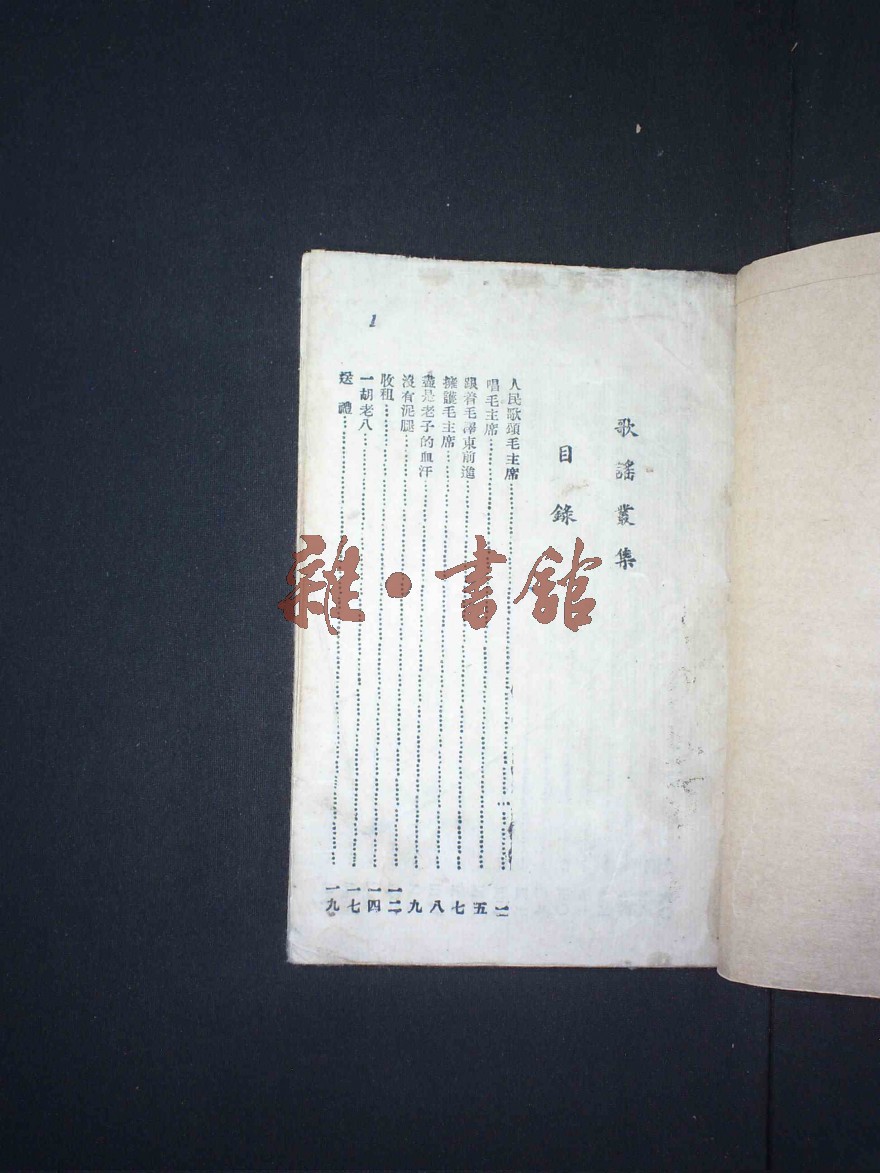 歌謠叢集
目錄
人民歌頌毛主席
唱毛主席 五
跟着毛澤東前進 七
擁護毛主席 八
盡是老子的血汗 九
沒有泥腿 一二
收租 一四
一胡老八 一七
送禮 一九
1
雜·書館